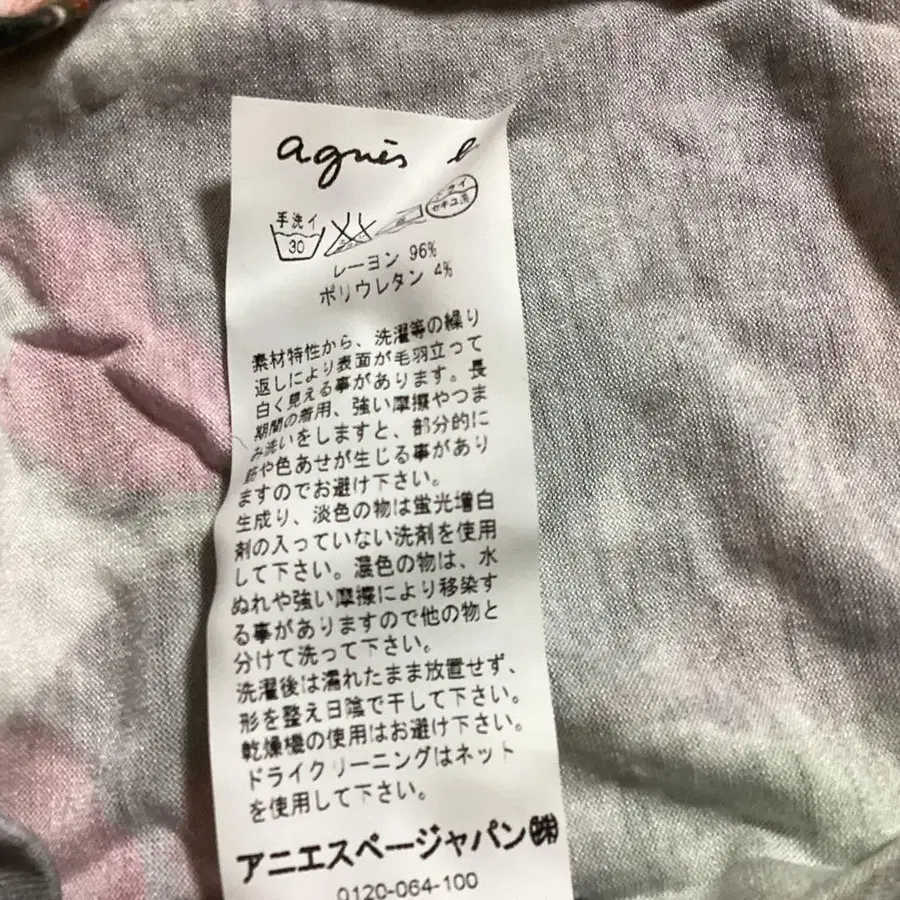 agnès b
手洗イ
30
ドライ
セキユ系
レーヨン 96%
ポリウレタン 4%
素材特性から、洗濯等の繰り
返しにより表面が毛羽立って
白く見える事があります。長
期間の着用、強い摩擦やつま
み洗いをしますと、部分的に
筋や色あせが生じる事があり
ますのでお避け下さい。
生成り、淡色の物は蛍光増白
剤の入っていない洗剤を使用
して下さい。濃色の物は、水
ぬれや強い摩擦により移染す
る事がありますので他の物と
分けて洗って下さい。
洗濯後は濡れたまま放置せず、
形を整え日陰で干して下さい。
乾燥機の使用はお避け下さい。
ドライクリーニングはネット
を使用して下さい。
アニエスベージャパン㈱
0120-064-100